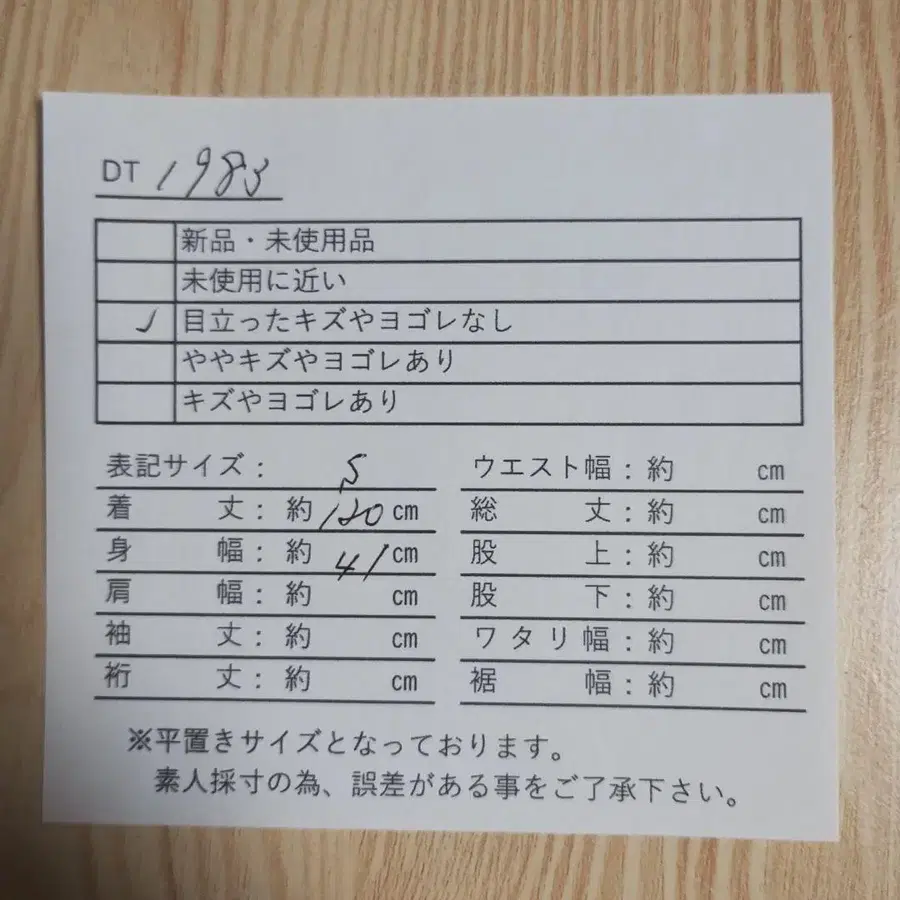 DT 1983
新品・未使用品
未使用に近い
✓ 目立ったキズやヨゴレなし
ややキズやヨゴレあり
キズやヨゴレあり
表記サイズ： S
着丈：約120cm
身幅：約41cm
肩幅：約 cm
袖丈：約 cm
裄丈：約 cm
ウエスト幅：約 cm
総丈：約 cm
股上：約 cm
股下：約 cm
ワタリ幅：約 cm
裾幅：約 cm
※平置きサイズとなっております。
素人採寸の為、誤差がある事をご了承下さい。